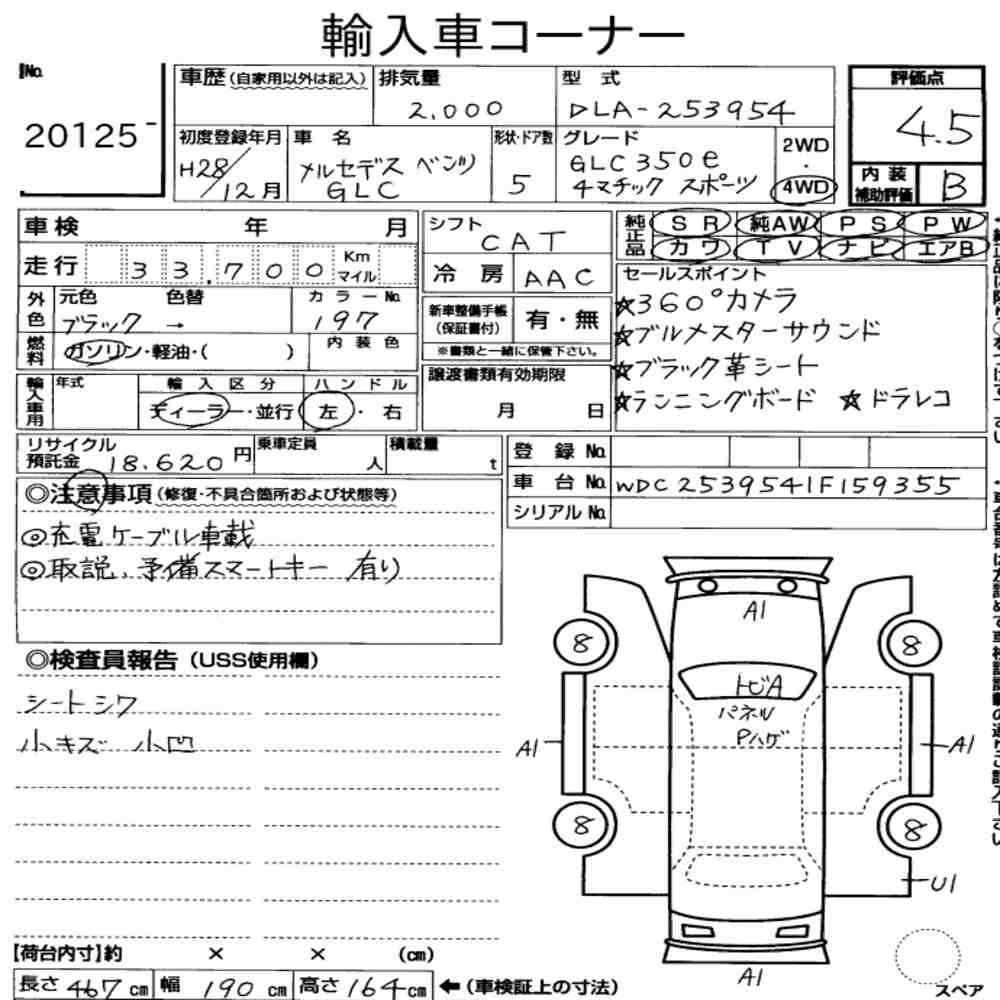 輸入車コーナー
No. 20125
車歴(自家用以外は記入)
排気量 2,000
型 式 DLA-253954
評価点 4.5
初度登録年月 H28/12月
車 名 メルセデス ベンツ
GLC
形状・ドア数 5
グレード GLC350e
4マチック スポーツ
2WD・4WD
内装補助評価 B
車検 年 月
走行 33,700 Km マイル
シフト CAT
冷 房 AAC
純正品 SR 純AW PS PW
カワ TV ナビ エアB
外色 元色 色替 カラーNo.
ブラック → 197
内装色
燃料 ガソリン・軽油・( )
新車整備手帳(保証書付) 有・無
※書類と一緒に保管下さい。
セールスポイント
☆360°カメラ
☆ブルメスターサウンド
☆ブラック革シート
☆ランニングボード ☆ドラレコ
輸入車用 年式 輸入区分 ハンドル
ディーラー・並行 左・右
譲渡書類有効期限
月 日
リサイクル預託金 18,620円
乗車定員 人
積載量 t
登 録 No.
車 台 No. WDC2539541F159355
シリアル No.
◎注意事項(修復・不具合箇所および状態等)
◎充電ケーブル車載
◎取説、予備スマートキー 有り
◎検査員報告(USS使用欄)
シートシワ
小キズ 小凹
A1
8 8
トビA
パネル
Pハゲ
A1 A1
8 8
U1
A1
スペア
【荷台内寸】約 × × (cm)
長さ 467 cm 幅 190 cm 高さ 164 cm ←(車検証上の寸法)